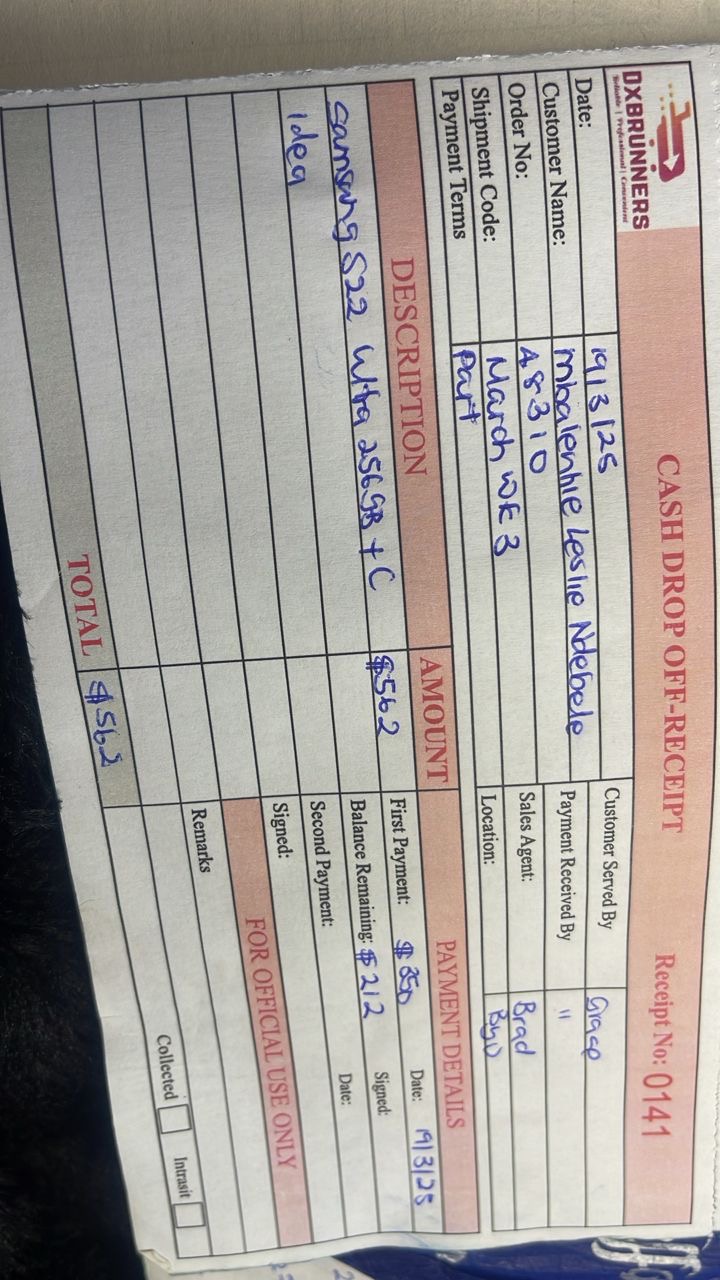 DXBRUNNERS
Reliable | Professional | Convenient
CASH DROP OFF-RECEIPT
Receipt No: 0141
Date: 19/3/25
Customer Name: Mbalenhle Leslie Ndebele
Order No: A8310
Shipment Code: March WK 3
Payment Terms Part
Customer Served By Grace
Payment Received By "
Sales Agent: Brad
Location: Byo
DESCRIPTION AMOUNT PAYMENT DETAILS
Samsung S22 Ultra 256GB + C $562
idea
First Payment: $350 Date: 19/3/25
Balance Remaining: $212 Signed:
Second Payment: Date:
Signed:
FOR OFFICIAL USE ONLY
Remarks
Collected Intrasit
TOTAL $562